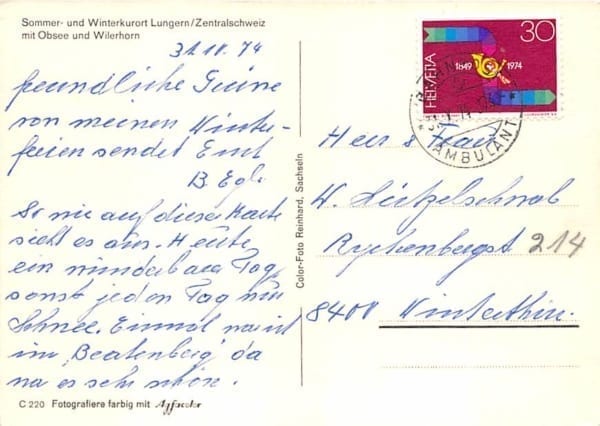 Sommer- und Winterkurort Lungern/Zentralschweiz
mit Obsee und Wilerhorn
freundliche Grüsse
von meinen Winter-
ferien sendet Emil
B. Egli
So wie auf dieser Karte
sieht es aus. Heute
ein wunderbarer Tag,
sonst jeden Tag nur
Schnee. Einmal war ich
im "Beatenberg" da
wa es sehr schön.
C 220 Fotografiere farbig mit Agfacolor
Color-Foto Reinhard, Sachseln
HELVETIA
30
1849
1974
AMBULANT
Herr & Frau
W. Hützelschwab
Rychenbergst 214
8400 Winterthur.